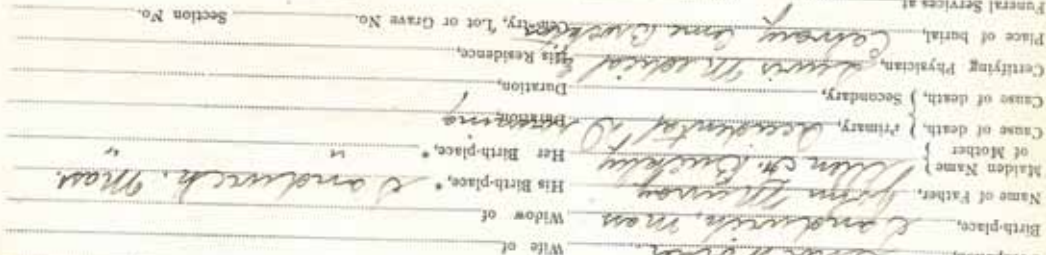 Wife of
Birth-place, Sandwich, Mass Widow of
Name of Father, John Murray His Birth-place,* Sandwich, Mass.
Maiden Name of Mother } Ellen A. Buckley Her Birth-place,* " "
Cause of death, } Primary, Accidental Drowning Duration,
Cause of death, } Secondary, Duration,
Certifying Physician, His Residence,
Place of burial, Calvary Cem Brockton Cem'try, Lot or Grave No. Section No.
Funeral Services at